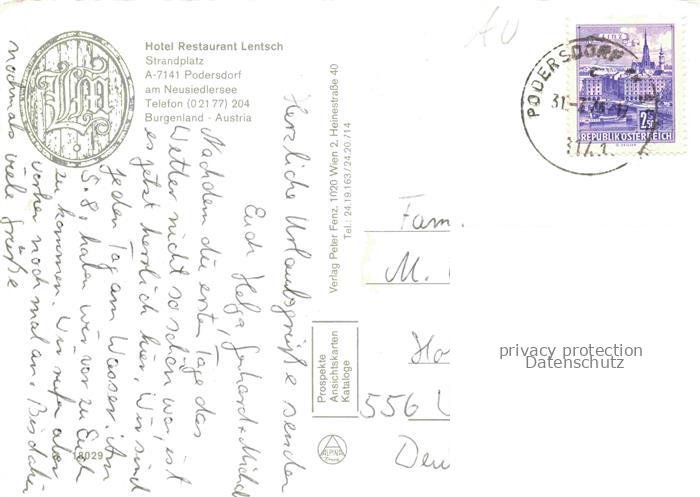 Hotel Restaurant Lentsch
Strandplatz
A-7141 Podersdorf
am Neusiedlersee
Telefon (0 21 77) 204
Burgenland - Austria
Herzliche Urlaubsgrüße senden
Euch Helga, Gerhard + Michel
Nachdem die ersten Tage das
Wetter nicht so schön war, ist
es jetzt herrlich hier. Wir sind
jeden Tag am Wasser. Am
5.8. haben wir vor zu Euch
zu kommen. Wir rufen aber
vorher noch mal an. Bis dahin
nochmals viele Grüße
18029
Verlag Peter Fenz, 1020 Wien 2, Heinestraße 40
Tel.: 24.19.163/24.20.714
Prospekte
Ansichtskarten
Kataloge
ALPINA
PODERSDORF
LINZ
2.50
REPUBLIK ÖSTERREICH
Fam.
M.
556
privacy protection
Datenschutz